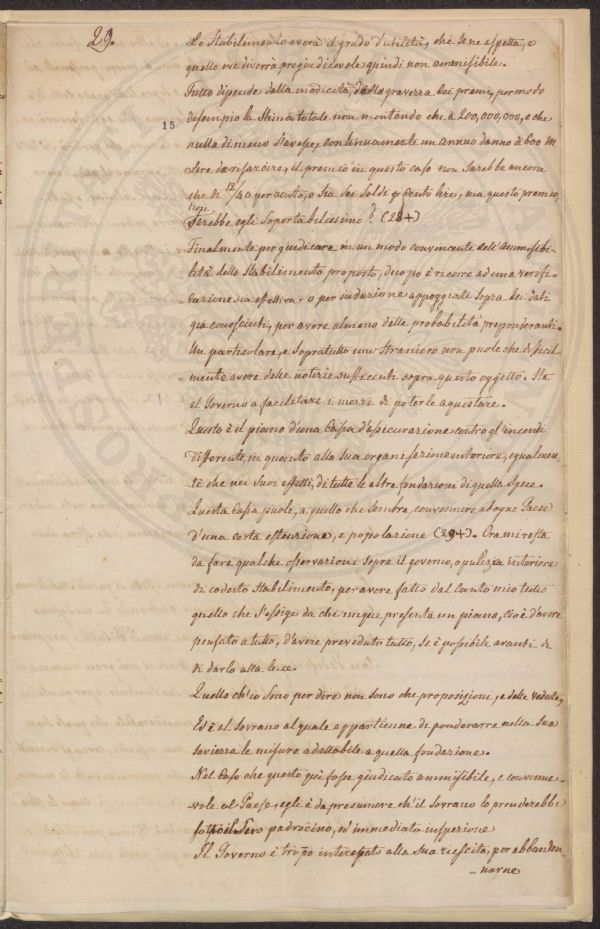 29.
Lo Stabilimento averà il grado d'utilità, che se ne aspetta, o
quello ove diverrà pregiudicievole quindi non ammisibile.
Tutto dipende dalla modicità, dalla gravezza dei premi, per modo
15
d'esempio la stima totale non montando che à 200,000,000, e che
nulla di meno s'avesse, continuamente un annuo danno à 600 m
lire da risarcire, il premio in questo caso non sarebbe ancora
che di 12/40 per cento, o sia sei soldi p cento lire, ma questo premio,
non
sarebbe egli soportabilissimo? (28+)
Finalmente per giudicare in un modo convincente dell'ammisibi-
lità dello Stabilimento proposto, d'uopo è ricorre ad una verifi-
cazione sia effettiva, o per induzione appoggiate sopra dei dati
gia conosciuti, per avere almeno delle probabilità preponderanti.
Un particolare, e sopratutto uno straniero non puole che dificil-
mente avere delle notizie sufficienti sopra questo oggetto. Sta
al Governo a facilitare i mezzi di poterle aquistare.
Questo è il piano d'una Cassa d'assicurazione contro gl'incendi
differente, in quanto alla sua organisazione interiore, egualmen-
te che nei suoi effetti, di tutte le altre fondazioni di quella spece.
Questa Cassa puole, a quello che sembra, convennire a ogne Paese
d'una certa estenzione, e popolazione (29+). Ora mi resta
da fare qualche osservazioni sopra il governo, o pulizia interiore
di codesto Stabilimento, per avere fatto dal canto mio tutto
quello che s'essige da chi unque presenta un piano, cioè d'avere
pensato a tutto, d'avere preveduto tutto, se è possibile avanti di
di darlo alla luce.
Quello ch'io sono per dire non sono che proposizioni, e delle vedute,
Ed è al Sovrano al quale appartienne di ponderarre nella sua
saviezza le misure adattabile a quella fondazione.
Nel caso che questo qui fosse giudicato ammisibile, e convenne-
vole al Paese, egli è da presumere ch'il Sovrano lo prenderebbe
sotto il Suo padrocino, ed immediato inspezione
Il Governo è tropo interessato alla sua riescita, per abbandon
narne